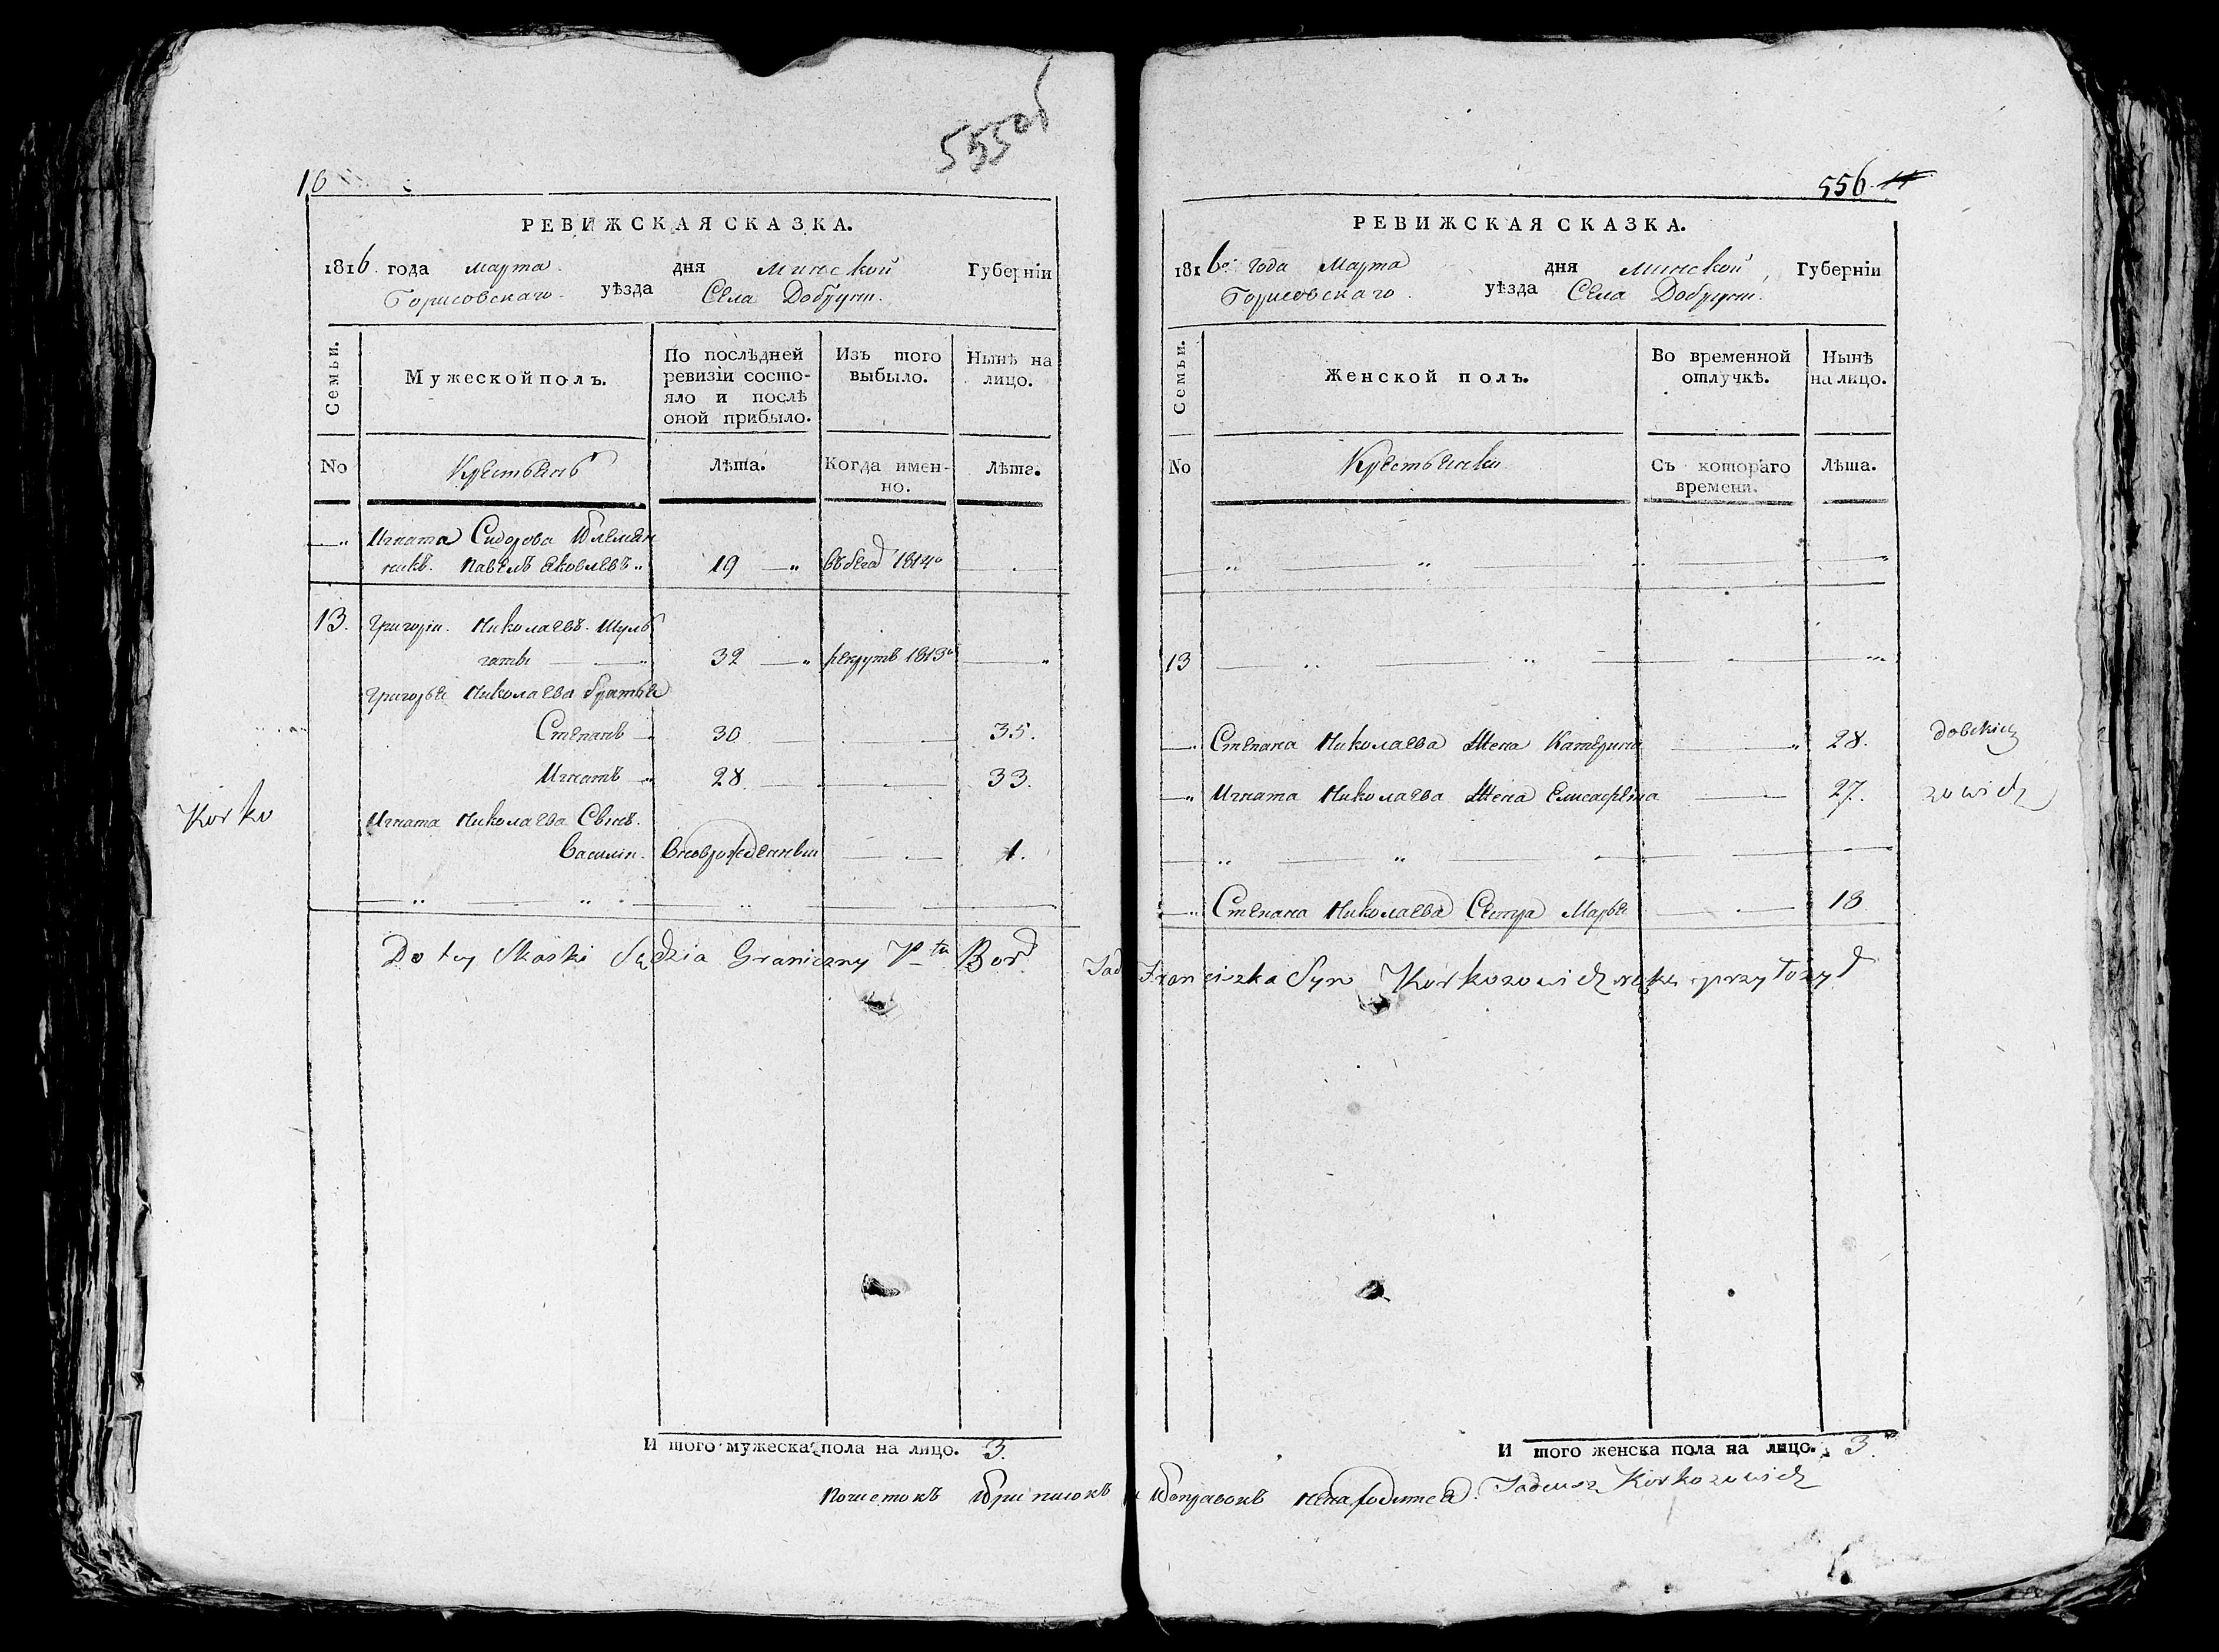 555об
10
РЕВИЖСКАЯ СКАЗКА.
1816 года марта дня Минской Губерніи
Борисовскаго уѣзда Села Добрунт.
Семьи.
Мужеской полъ.
По послѣдней ревизіи состо-
яло и послѣ
оной прибыло.
Изъ того
выбыло.
Нынѣ на
лицо.
No
Крестьянъ
Лѣта.
Когда имен-
но.
Лѣта.
Игната Сидорова Племян
никъ. Павелъ Яковлевъ 19 Въ бегах 1814
13. Григорій Николаевъ Шуль
гаты 32 рекрутъ 1813
Григорья Николаева братья
Степанъ 30 35.
Игнатъ 28 33.
Игната Николаева Сынъ
Василій. Вновьрожденный 1.
Korko
Do tey Skaski Sędzia Graniczny Ptu Bor
И того мужеска пола на лицо. 3.
Почистокъ Приписокъ
556 11
РЕВИЖСКАЯ СКАЗКА.
1816 года Марта дня Минской Губерніи
Борисовскаго уѣзда Села Добрунт.
Семьи.
Женской полъ.
Во временной
отлучкѣ.
Нынѣ
на лицо.
No
Крестьянки
Съ котораго
времени.
Лѣта.
13
Степана Николаева Жена Катерина 28.
Игната Николаева Жена Елисафета 27.
Степана Николаева Сестра Марья 13
zowicz
Franciszka Syn Korkozowicz rękę przyłożył
И того женска пола на лицо. 3
и Поправокъ ненаходится. Tadeusz Korkozowicz